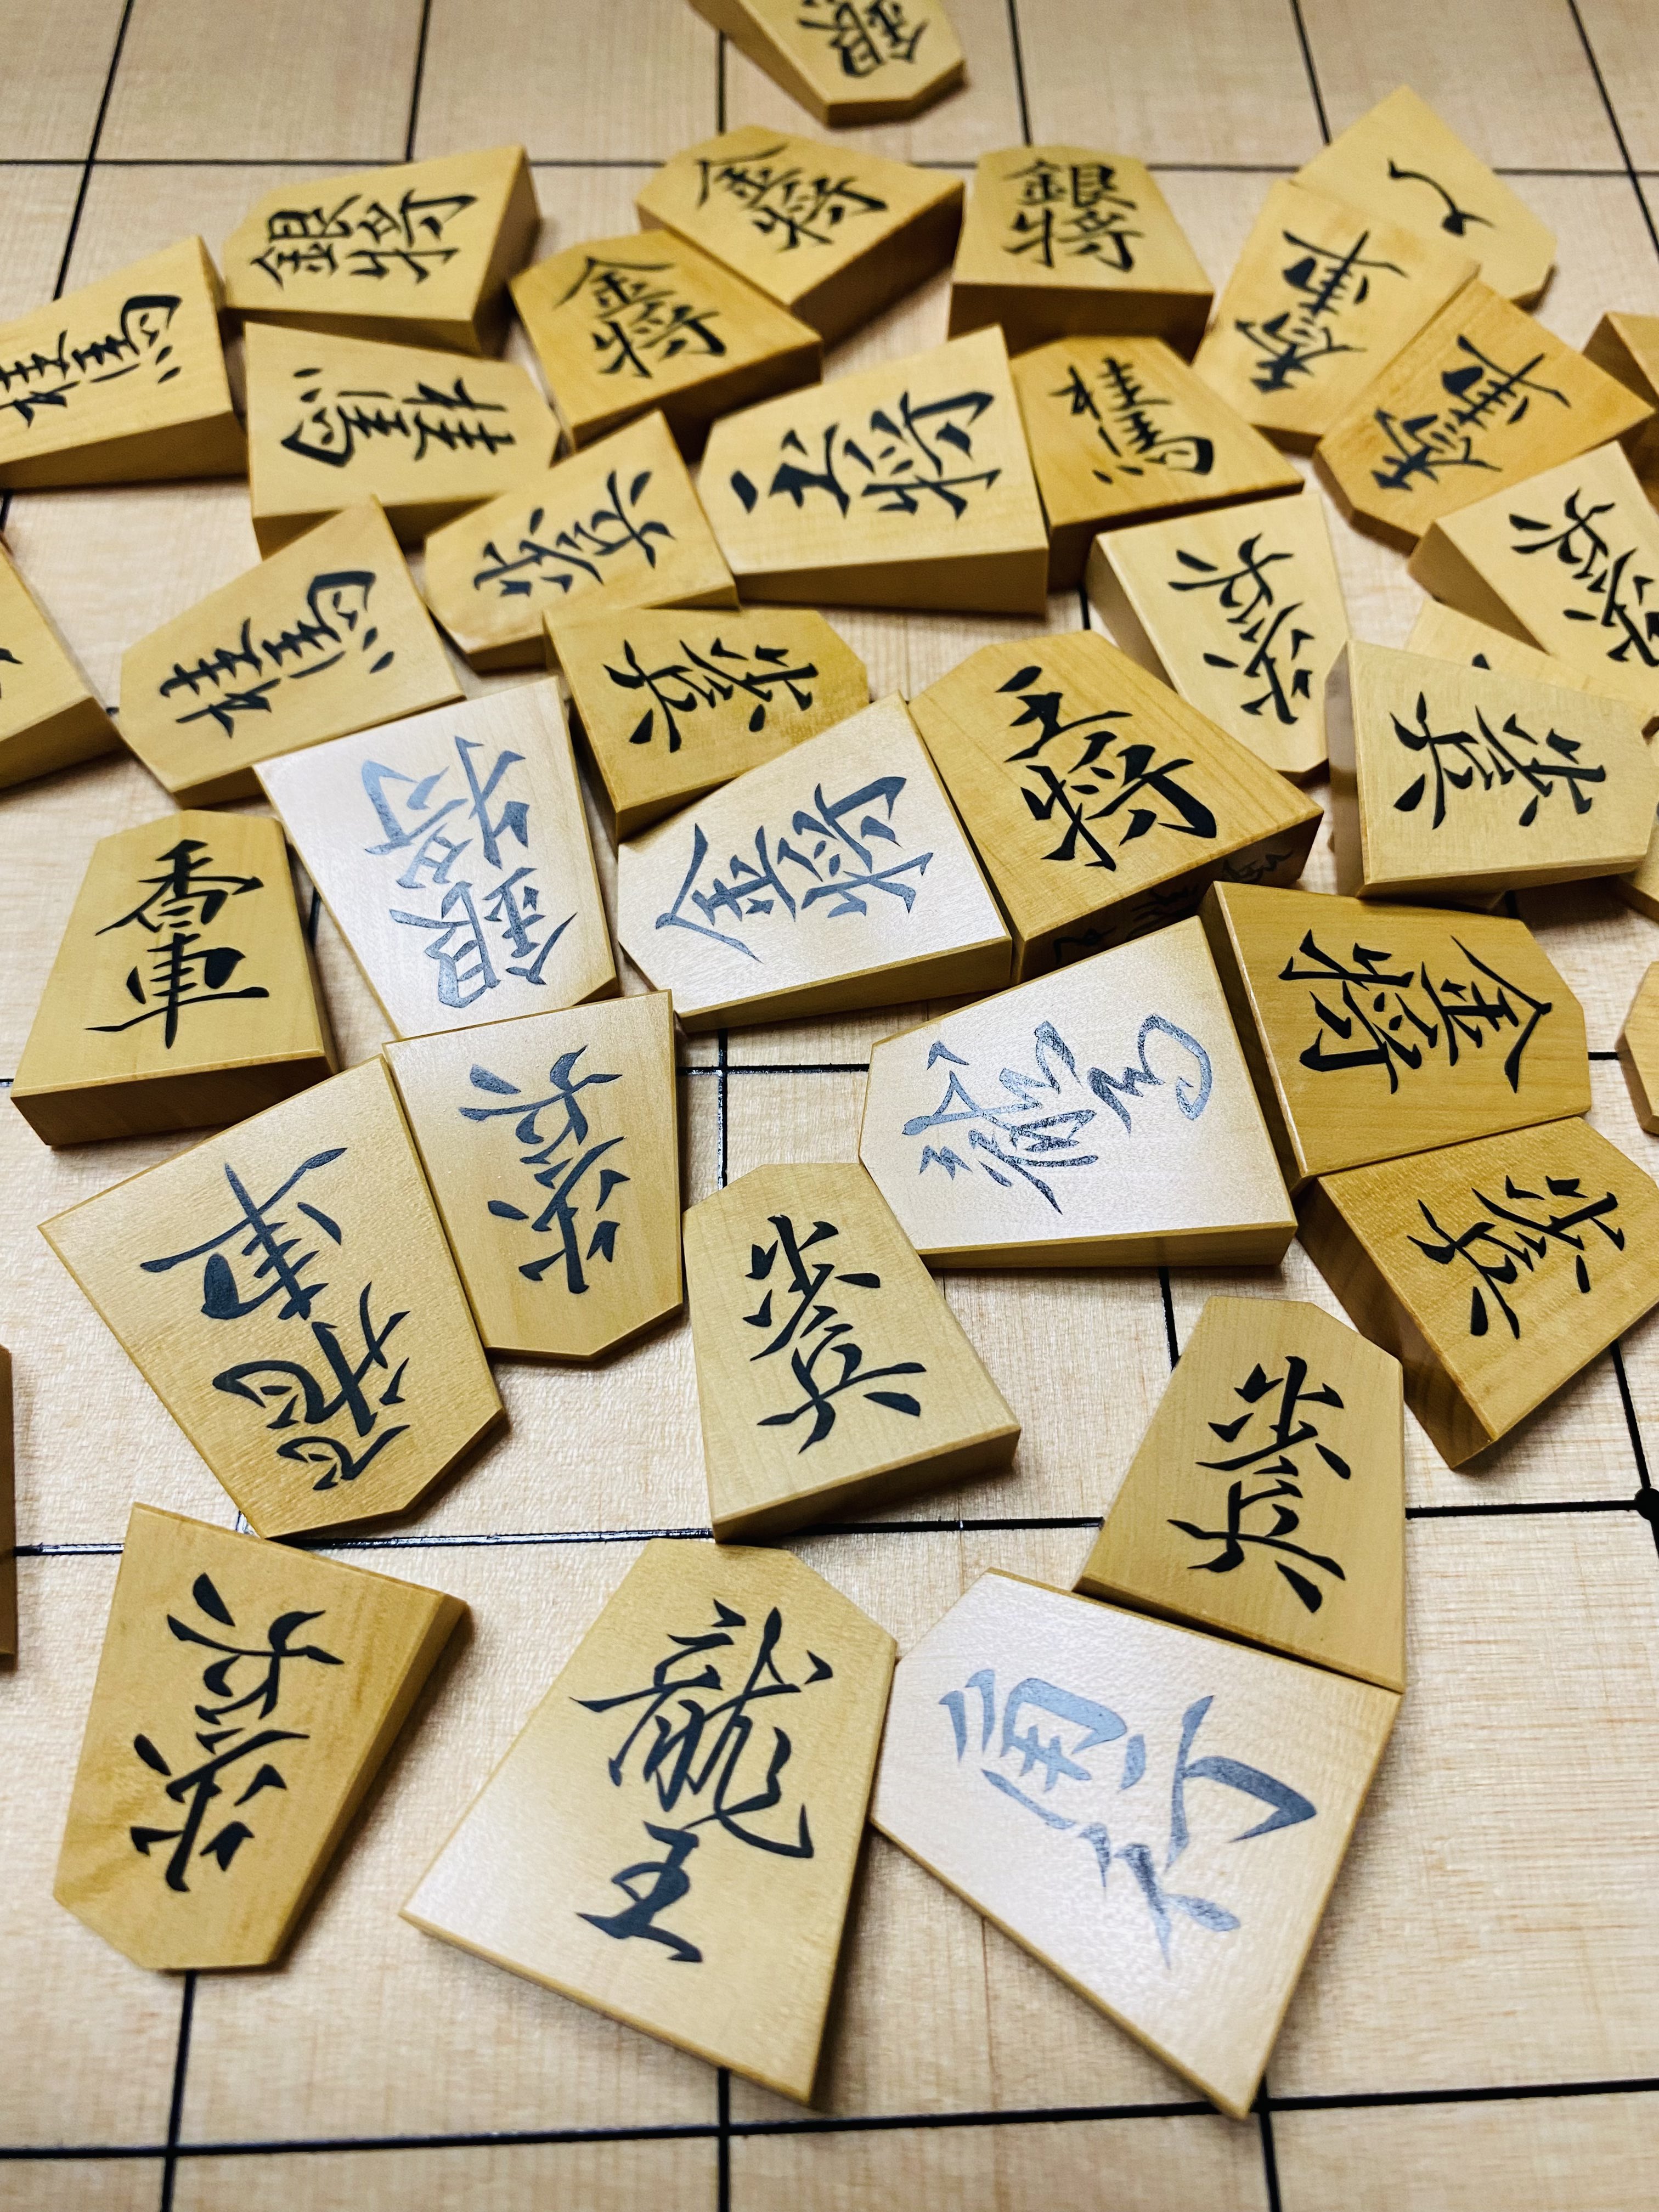 銀
銀将
金将
銀将
と
桂馬
桂馬
金将
王将
桂馬
香車
香車
歩兵
歩兵
歩兵
桂馬
歩兵
王将
歩兵
香車
銀将
金将
金将
飛車
歩兵
龍馬
歩兵
歩兵
歩兵
歩兵
龍王
角行